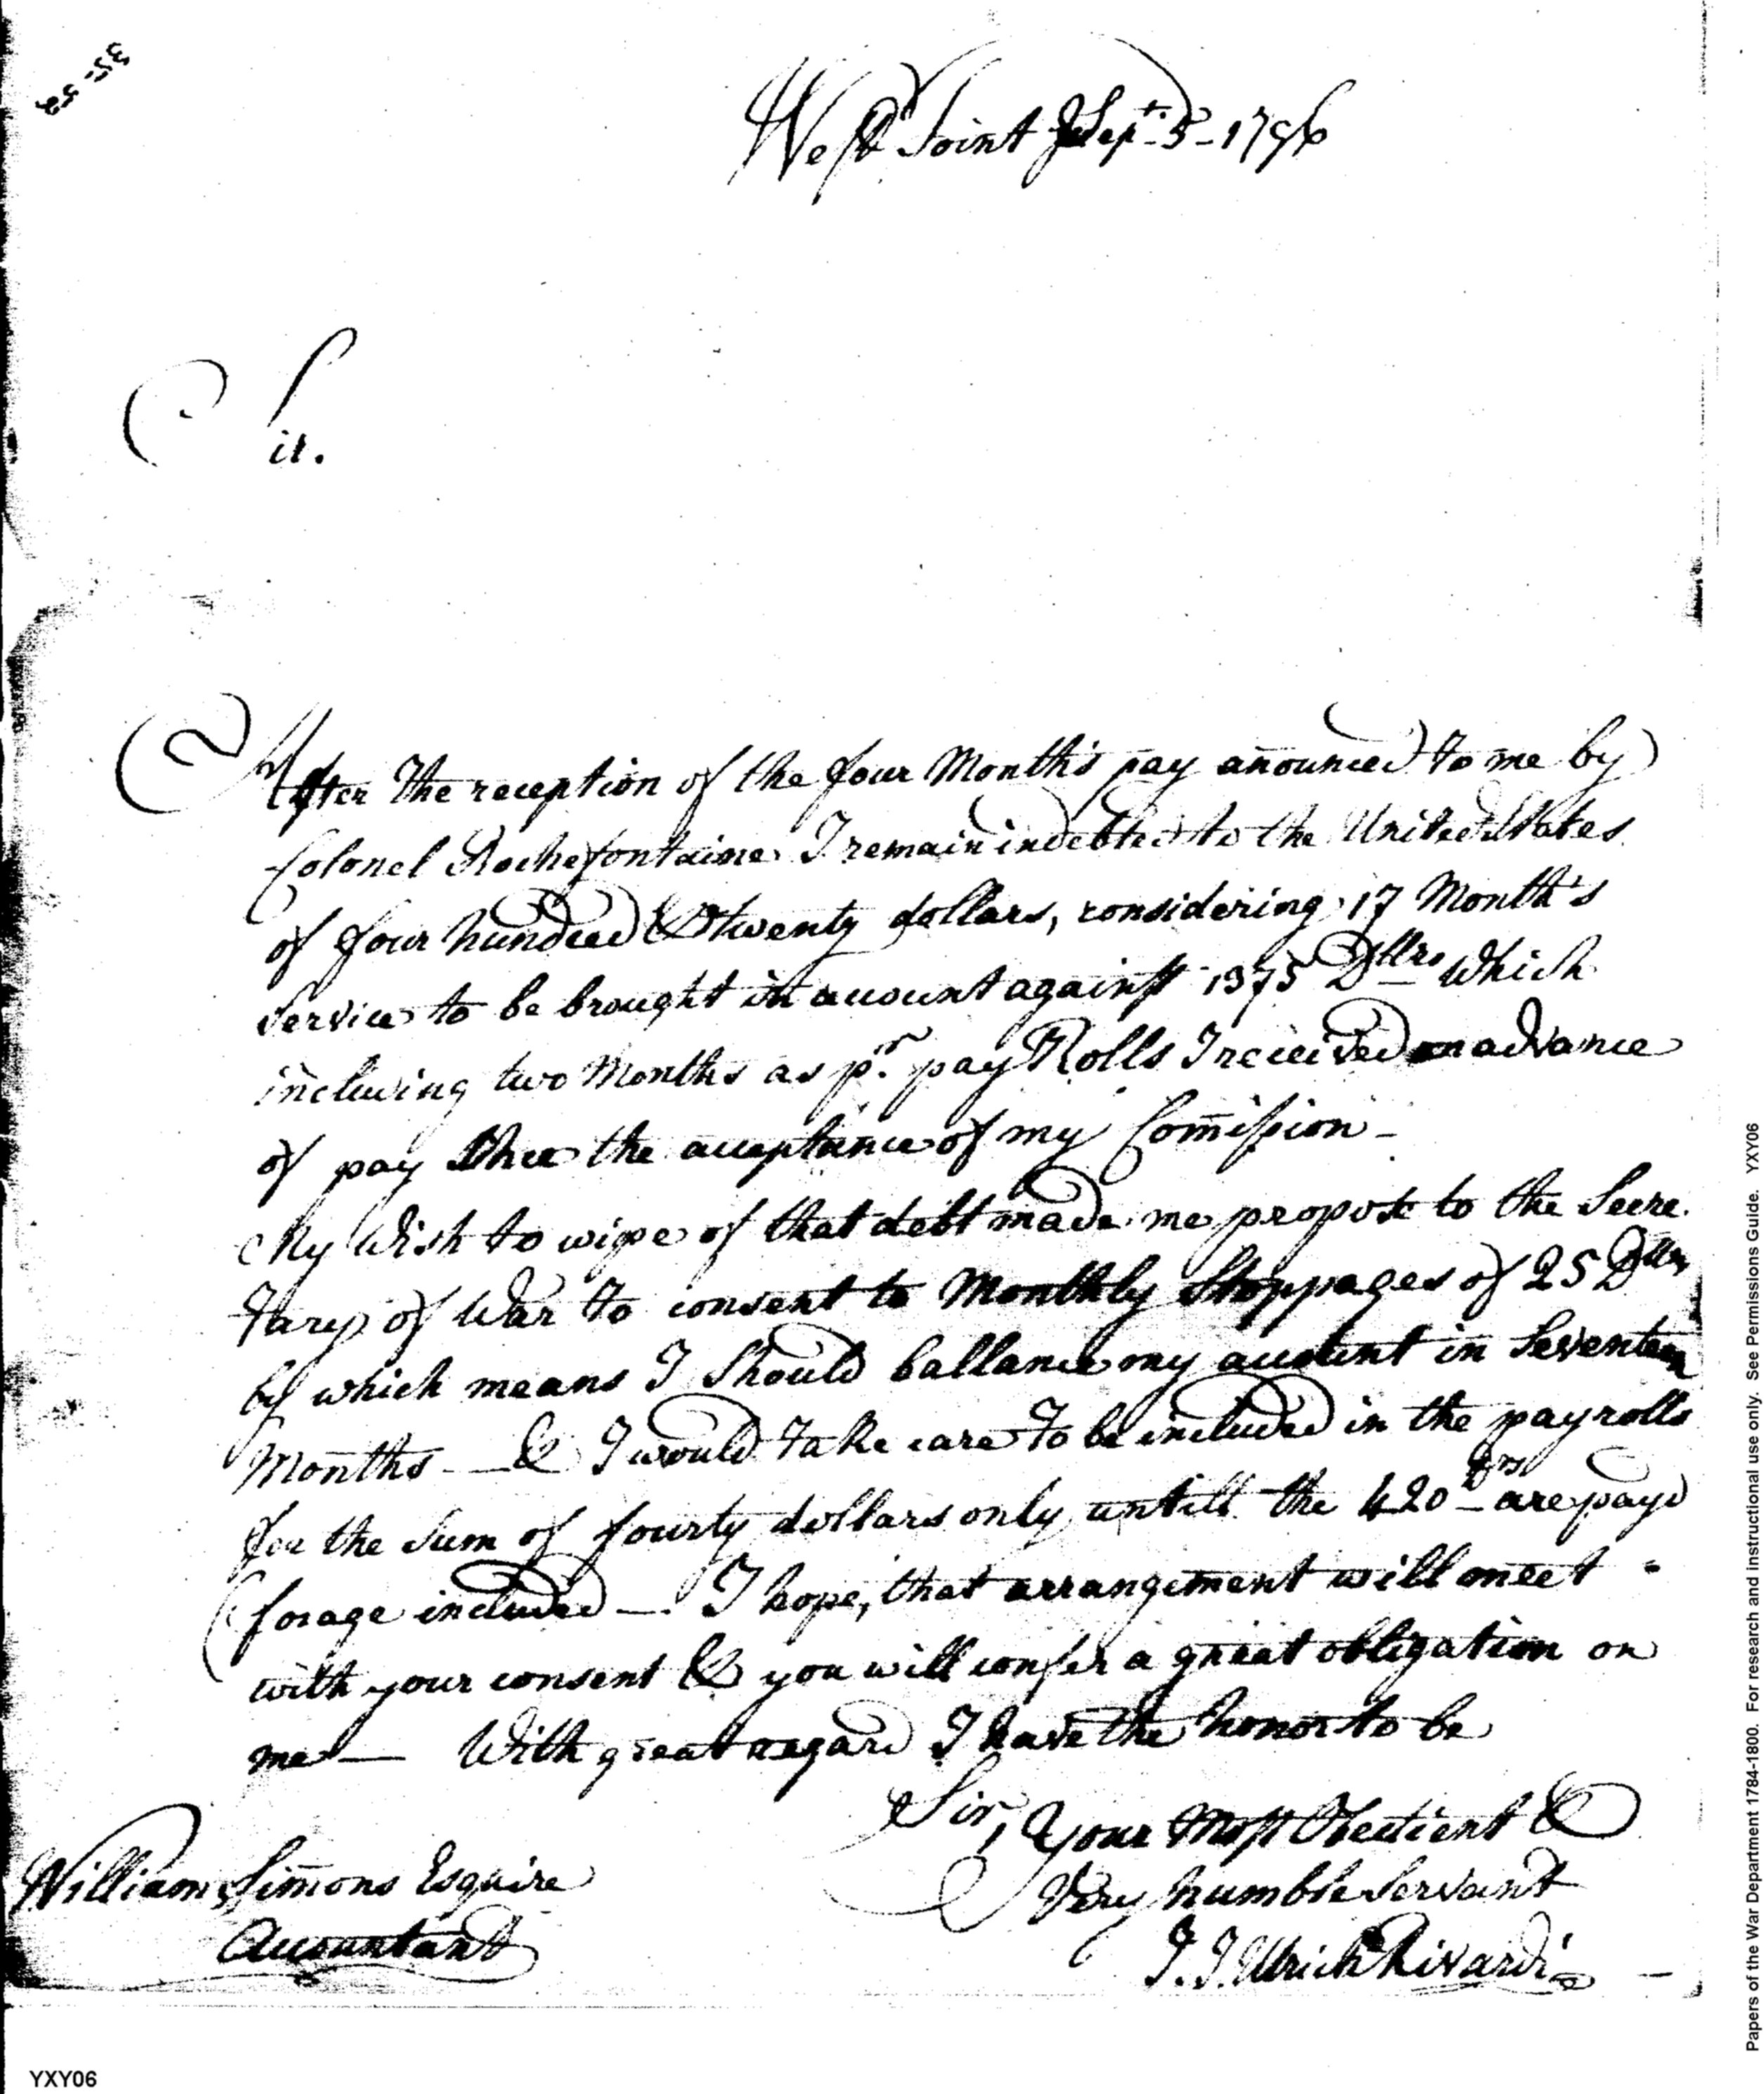 35-52
West Point Sept. 5 - 1796
Sir.
After the reception of the four Month's pay anounced to me by
Colonel Rochefontaine I remain indebted to the United States
of four hundred & twenty dollars, considering 17 Month's
Service to be brought in acount against 1375 Dllrs which
including two Months as pr. pay Rolls I received on advance
of pay the acceptance of my Comission -
My Wish to wipe of that debt made me propose to the Secre
tary of War to consent to Monthly Stoppages of 25 Dllrs
by which means I Should ballance my account in Seventeen
Months - & I would take care to be included in the pay rolls
for the Sum of fourty dollars only untill the 420 Drs are payd
forage included - I hope, that arrangement will meet
with your consent & you will confer a great obligation on
me - With great regard I have the honor to be
Sir, Your Most Obedient &
Very humble Servant
J. J. Ulrich Rivardi
William Simons Esquire
Accountant
YXY06
Papers of the War Department 1784-1800. For research and instructional use only. See Permissions Guide. YXY06